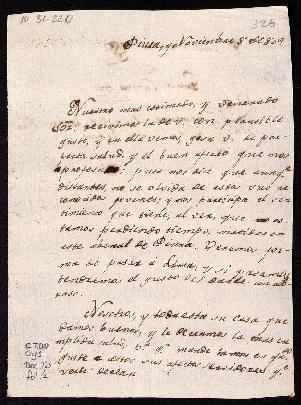 10-31-2210
326
Piura, y Noviembre 8 de 809
Nuestro mas estimado, y venerado
Sor: recivimos la de V. con plausible
gusto, y en ella vemos, gosa V. de per-
fecta salud, y el buen afecto que nos
profesa: pues nos dice que aunqe
distantes, no se olvida de esta
y nos participa el sen-
timiento que tiene, al ver, que nos es-
tamos perdiendo tiempo, metidos en
este arenal de Piura. Veremos for-
ma de pasar a Lima, y si
tendremos el gusto de darle un ab-
raso.
Nosotros, y toda esta su casa que-
damos buenos, y le deceamos la mas cum-
plida salud, y qe mande
guste a estos sus afectos servidores qe
verle decean